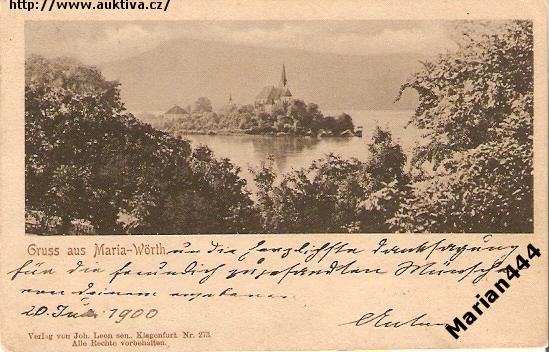 http://www.auktiva.cz/
Gruss aus Maria-Wörth und die herzlichste Danksagung
für die freundlich zugesandten Wünsche
von deinem ergebenen
20. 1900
Anton
Marian444
Verlag von Joh. Leon sen., Klagenfurt. Nr. 273.
Alle Rechte vorbehalten.